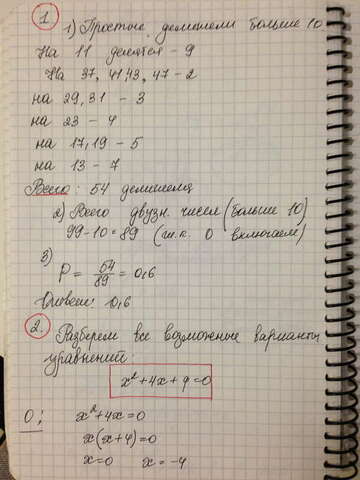 1
1) Простые делители больше 10
На 11 делятся - 9
На 37, 41, 43, 47 - 2
на 29, 31 - 3
на 23 - 4
на 17, 19 - 5
на 13 - 7
Всего: 54 делителя
2) Всего двузн. чисел (больше 10)
99-10=89 (т.к. 0 включаем)
3)
P = 54/89 = 0,6
Ответ: 0,6
2. Разберем все возможные варианты
уравнений:
x²+4x+q=0
0: x²+4x=0
x(x+4)=0
x=0 x=-4